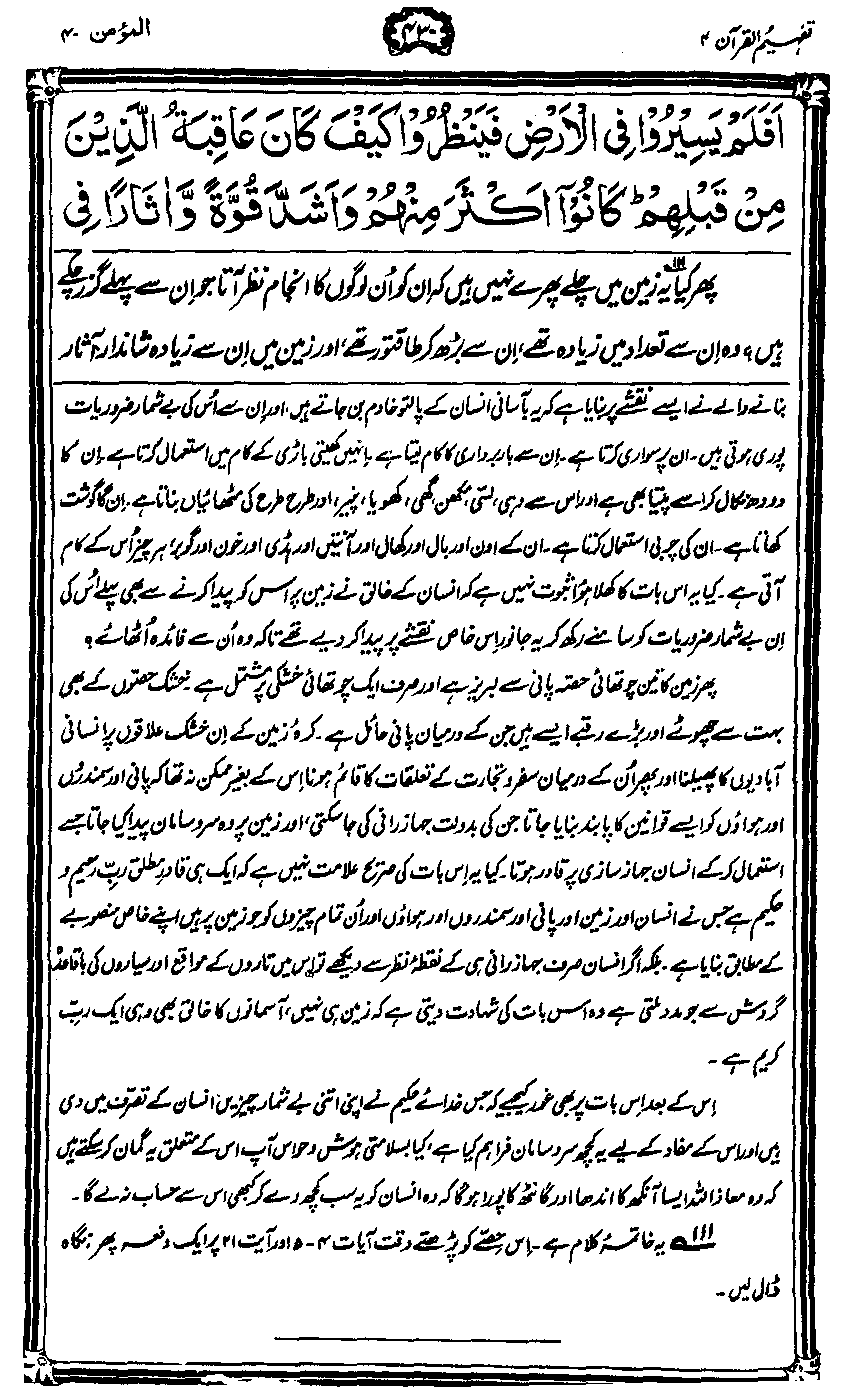 تفہیم القرآن ۴
۴۳۰
المؤمن ۴۰
اَفَلَمْ یَسِیْرُوْا فِی الْاَرْضِ فَیَنْظُرُوْا کَیْفَ کَانَ عَاقِبَةُ الَّذِیْنَ
مِنْ قَبْلِهِمْ ؕ کَانُوْۤا اَکْثَرَ مِنْهُمْ وَاَشَدَّ قُوَّةً وَّاٰثَارًا فِی
پھر کیا۱۱۱ یہ زمین میں چلے پھرے نہیں ہیں کہ ان کو اُن لوگوں کا انجام نظر آتا جو ان سے پہلے گزر چکے
ہیں؟ وہ اِن سے تعداد میں زیادہ تھے، اِن سے بڑھ کر طاقتور تھے، اور زمین میں اِن سے زیادہ شاندار آثار
بنانے والے نے ایسے نقشے پر بنایا ہے کہ یہ بآسانی انسان کے پالتو خادم بن جاتے ہیں، اور ان سے اُس کی بے شمار ضروریات
پوری ہوتی ہیں۔ ان پر سواری کرتا ہے۔ اِن سے باربرداری کا کام لیتا ہے۔ انہیں کھیتی باڑی کے کام میں استعمال کرتا ہے۔ اِن کا
دودھ نکال کر اسے پیتا بھی ہے اور اس سے دہی، لسّی، مکھن، گھی، کھویا، پنیر، اور طرح طرح کی مٹھائیاں بناتا ہے۔ اِن کا گوشت
کھاتا ہے۔ ان کی چربی استعمال کرتا ہے۔ ان کے اون اور بال اور کھال اور آنتیں اور ہڈی اور خون اور گوبر، ہر چیز اُس کے کام
آتی ہے۔ کیا یہ اس بات کا کھلا ہوا ثبوت نہیں ہے کہ انسان کے خالق نے زمین پر اس کو پیدا کرنے سے بھی پہلے اُس کی
اِن بے شمار ضروریات کو سامنے رکھ کر یہ جانور اِس خاص نقشے پر پیدا کر دیے تھے تاکہ وہ اُن سے فائدہ اُٹھائے؟
پھر زمین کا تین چوتھائی حصہ پانی سے لبریز ہے اور صرف ایک چوتھائی خشکی پر مشتمل ہے۔ خشک حصّوں کے بھی
بہت سے چھوٹے اور بڑے رقبے ایسے ہیں جن کے درمیان پانی حائل ہے۔ کرۂ زمین کے اِن خشک علاقوں پر انسانی
آبادیوں کا پھیلنا اور پھر اُن کے درمیان سفر و تجارت کے تعلقات کا قائم ہونا اِس کے بغیر ممکن نہ تھا کہ پانی اور سمندروں
اور ہواؤں کو ایسے قوانین کا پابند بنایا جاتا جن کی بدولت جہاز رانی کی جا سکتی، اور زمین پر وہ سر و سامان پیدا کیا جاتا جسے
استعمال کر کے انسان جہاز سازی پر قادر ہوتا۔ کیا یہ اِس بات کی صریح علامت نہیں ہے کہ ایک ہی قادرِ مطلق ربِّ رحیم و
حکیم ہے جس نے انسان اور زمین اور پانی اور سمندروں اور ہواؤں اور اُن تمام چیزوں کو جو زمین پر ہیں اپنے خاص منصوبے
کے مطابق بنایا ہے۔ بلکہ اگر انسان صرف جہاز رانی ہی کے نقطۂ نظر سے دیکھے تو اِس میں تاروں کے مواقع اور سیاروں کی باقاعدہ
گردش سے جو مدد ملتی ہے وہ اس بات کی شہادت دیتی ہے کہ زمین ہی نہیں، آسمانوں کا خالق بھی وہی ایک ربِّ
کریم ہے۔
اِس کے بعد اِس بات پر بھی غور کیجیے کہ جس خدائے حکیم نے اپنی اتنی بے شمار چیزیں انسان کے تصرّف میں دی
ہیں اور اس کے مفاد کے لیے یہ کچھ سر و سامان فراہم کیا ہے، کیا بسلامتیٔ ہوش و حواس آپ اس کے متعلق یہ گمان کر سکتے ہیں
کہ وہ معاذ اللہ ایسا آنکھ کا اندھا اور گانٹھ کا پورا ہوگا کہ وہ انسان کو یہ سب کچھ دے کر کبھی اس سے حساب نہ لے گا۔
۱۱۱؎ یہ خاتمۂ کلام ہے۔ اِس حِصّے کو پڑھتے وقت آیات ۴-۵ اور آیت ۲۱ پر ایک دفعہ پھر نگاہ
ڈال لیں۔